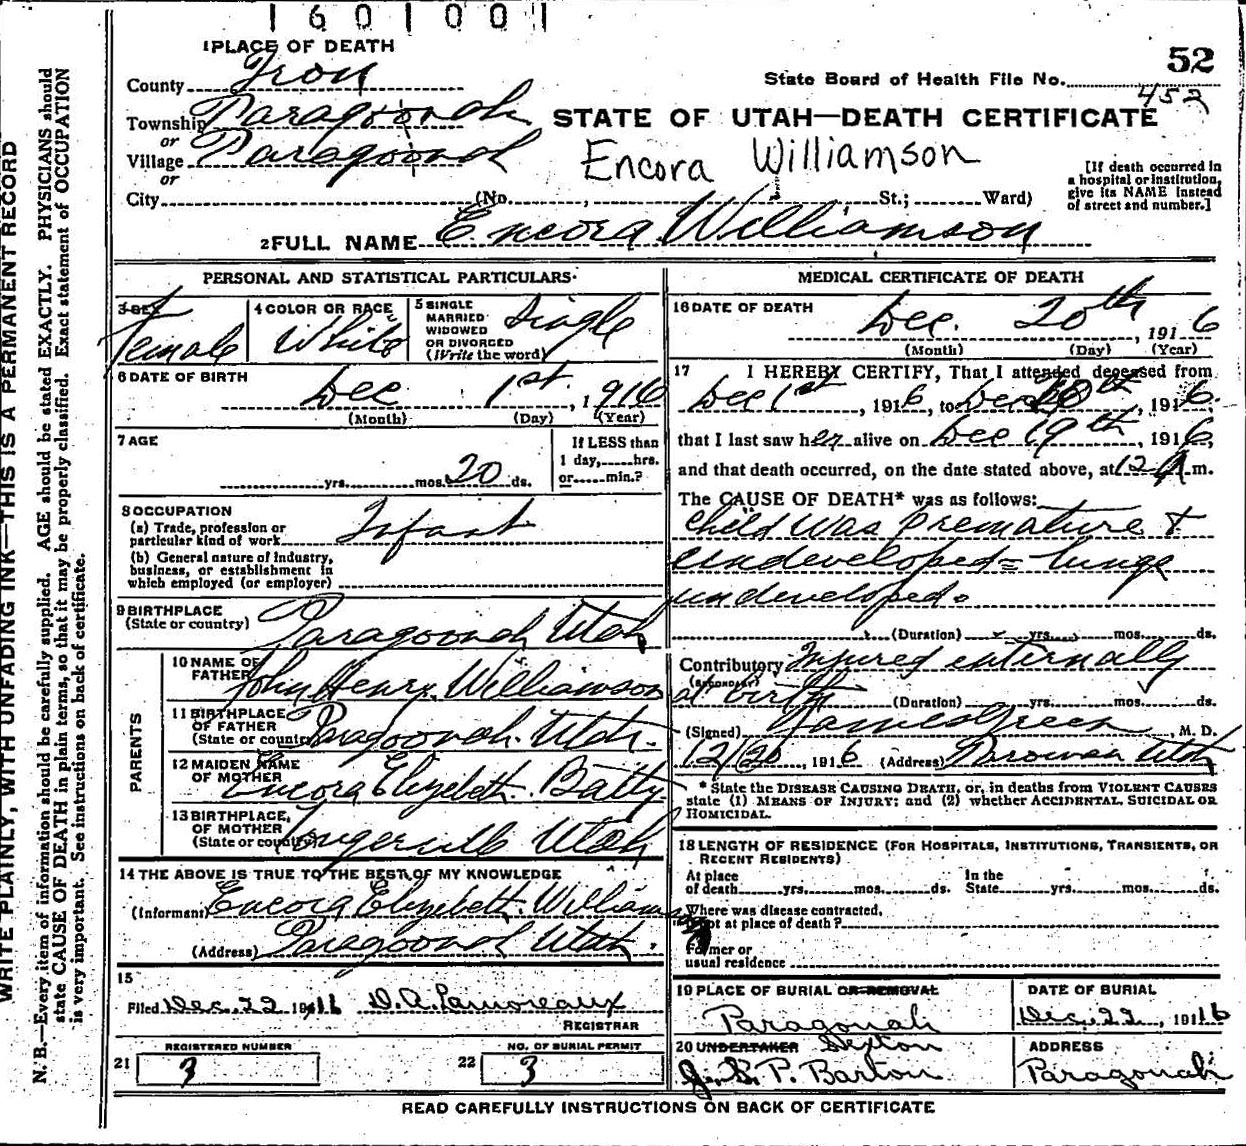 1601001
1 PLACE OF DEATH
52
County Iron
State Board of Health File No. 452
Township Paragoonah
or
STATE OF UTAH—DEATH CERTIFICATE
Village Paragoonah
or
Encora Williamson
[If death occurred in
a hospital or institution,
give its NAME instead
of street and number.]
City (No. , St.; Ward)
2 FULL NAME Encora Williamson
PERSONAL AND STATISTICAL PARTICULARS
3 SEX
Female
4 COLOR OR RACE
White
5 SINGLE
MARRIED
WIDOWED
OR DIVORCED
(Write the word)
Single
6 DATE OF BIRTH
Dec 1st, 1916
(Month) (Day) (Year)
7 AGE
yrs. mos. 20 ds.
If LESS than
1 day, hrs.
or min.?
8 OCCUPATION
(a) Trade, profession or
particular kind of work Infant
(b) General nature of industry,
business, or establishment in
which employed (or employer)
9 BIRTHPLACE
(State or country) Paragoonah Utah
PARENTS
10 NAME OF
FATHER John Henry Williamson
11 BIRTHPLACE
OF FATHER
(State or country) Paragoonah. Utah.
12 MAIDEN NAME
OF MOTHER Encora Elizebeth. Batty
13 BIRTHPLACE
OF MOTHER
(State or country) Toquerville Utah
14 THE ABOVE IS TRUE TO THE BEST OF MY KNOWLEDGE
(Informant) Encora Elizebeth. Williamson
(Address) Paragoonah Utah.
15
Filed Dec. 22 1916 D. A. Lamoreaux
REGISTRAR
21 REGISTERED NUMBER
3
22 NO. OF BURIAL PERMIT
3
MEDICAL CERTIFICATE OF DEATH
16 DATE OF DEATH
Dec. 20th, 1916
(Month) (Day) (Year)
17 I HEREBY CERTIFY, That I attended deceased from
Dec 1st, 1916, to Dec 20th, 1916.
that I last saw her alive on Dec 19th, 1916,
and that death occurred, on the date stated above, at 12 A m.
The CAUSE OF DEATH* was as follows:
Child was premature &
undeveloped = lungs
undeveloped.
(Duration) yrs. mos. ds.
Contributory Injured internally
(SECONDARY)
at birth (Duration) yrs. mos. ds.
(Signed) James Green, M. D.
12/20, 1916 (Address) Parowan Utah
* State the DISEASE CAUSING DEATH, or, in deaths from VIOLENT CAUSES
state (1) MEANS OF INJURY; and (2) whether ACCIDENTAL, SUICIDAL OR
HOMICIDAL.
18 LENGTH OF RESIDENCE (FOR HOSPITALS, INSTITUTIONS, TRANSIENTS, OR
RECENT RESIDENTS)
At place
of death yrs. mos. ds.
In the
State yrs. mos. ds.
Where was disease contracted,
if not at place of death?
Former or
usual residence
19 PLACE OF BURIAL OR REMOVAL
Paragonah
DATE OF BURIAL
Dec. 22, 1916
20 UNDERTAKER Sexton
J. S. P. Barton
ADDRESS
Paragonah
READ CAREFULLY INSTRUCTIONS ON BACK OF CERTIFICATE
WRITE PLAINLY, WITH UNFADING INK—THIS IS A PERMANENT RECORD
N. B.—Every item of information should be carefully supplied. AGE should be stated EXACTLY. PHYSICIANS should
state CAUSE OF DEATH in plain terms, so that it may be properly classified. Exact statement of OCCUPATION
is very important. See instructions on back of certificate.